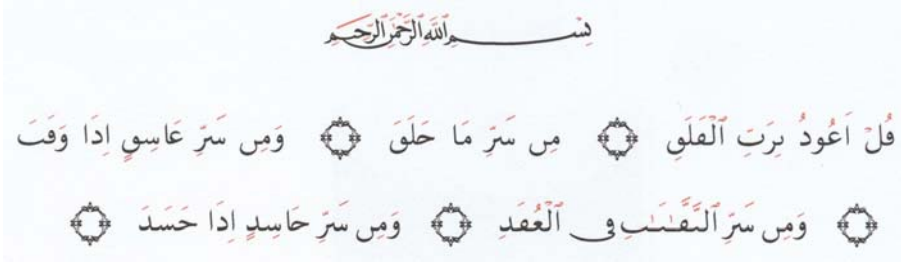 بِسْمِ ٱللَّهِ ٱلرَّحْمَٰنِ ٱلرَّحِيمِ
قُلْ اَعُودُ بِرَبِّ ٱلْفَلَقِ ۝ مِن سَرِّ مَا حَلَقَ ۝ وَمِن سَرِّ عَاسِقٍ اِدَا وَقَبَ
۝ وَمِن سَرِّ ٱلنَّفَّٰثَٰتِ فِى ٱلْعُقَدِ ۝ وَمِن سَرِّ حَاسِدٍ اِدَا حَسَدَ ۝